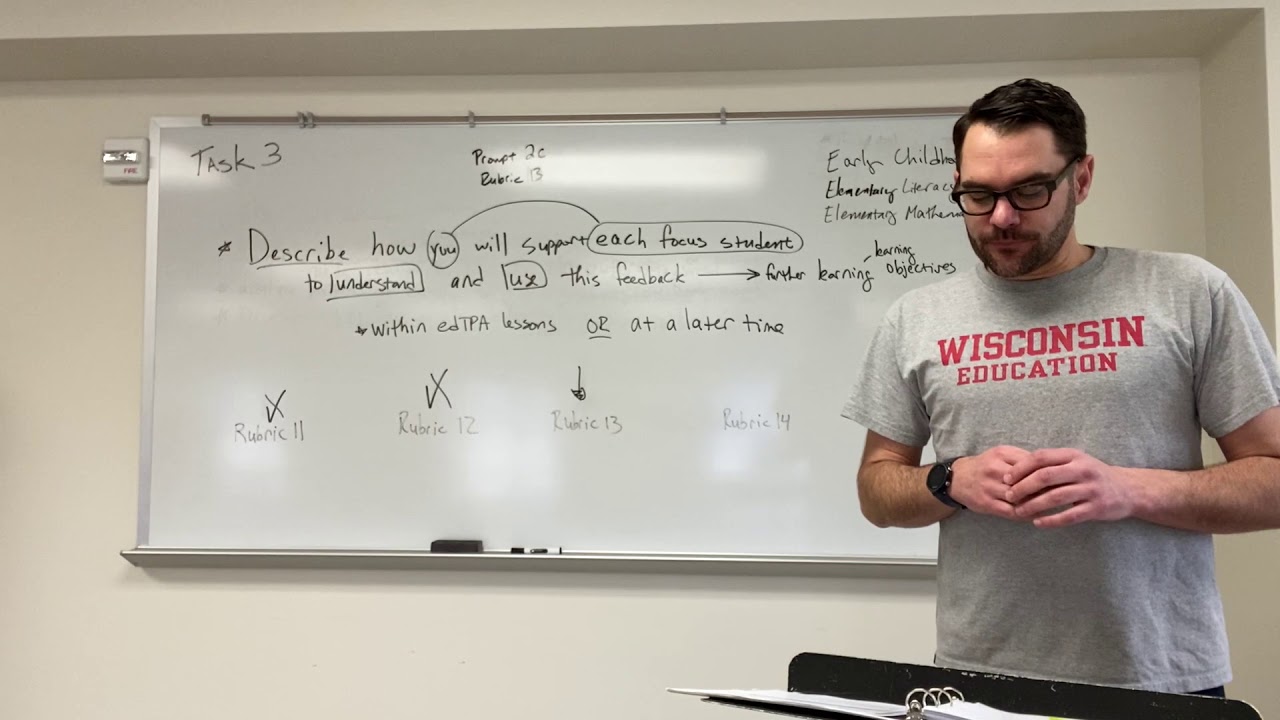 Task 3
Prompt 2c
Rubric 13
Early Childho
Elementary Literacy
Elementary Mathem
* Describe how you will support each focus student
to understand and use this feedback → further learning
learning objectives
* within edTPA lessons OR at a later time
Rubric 11
Rubric 12
Rubric 13
Rubric 14
WISCONSIN
EDUCATION
FIRE